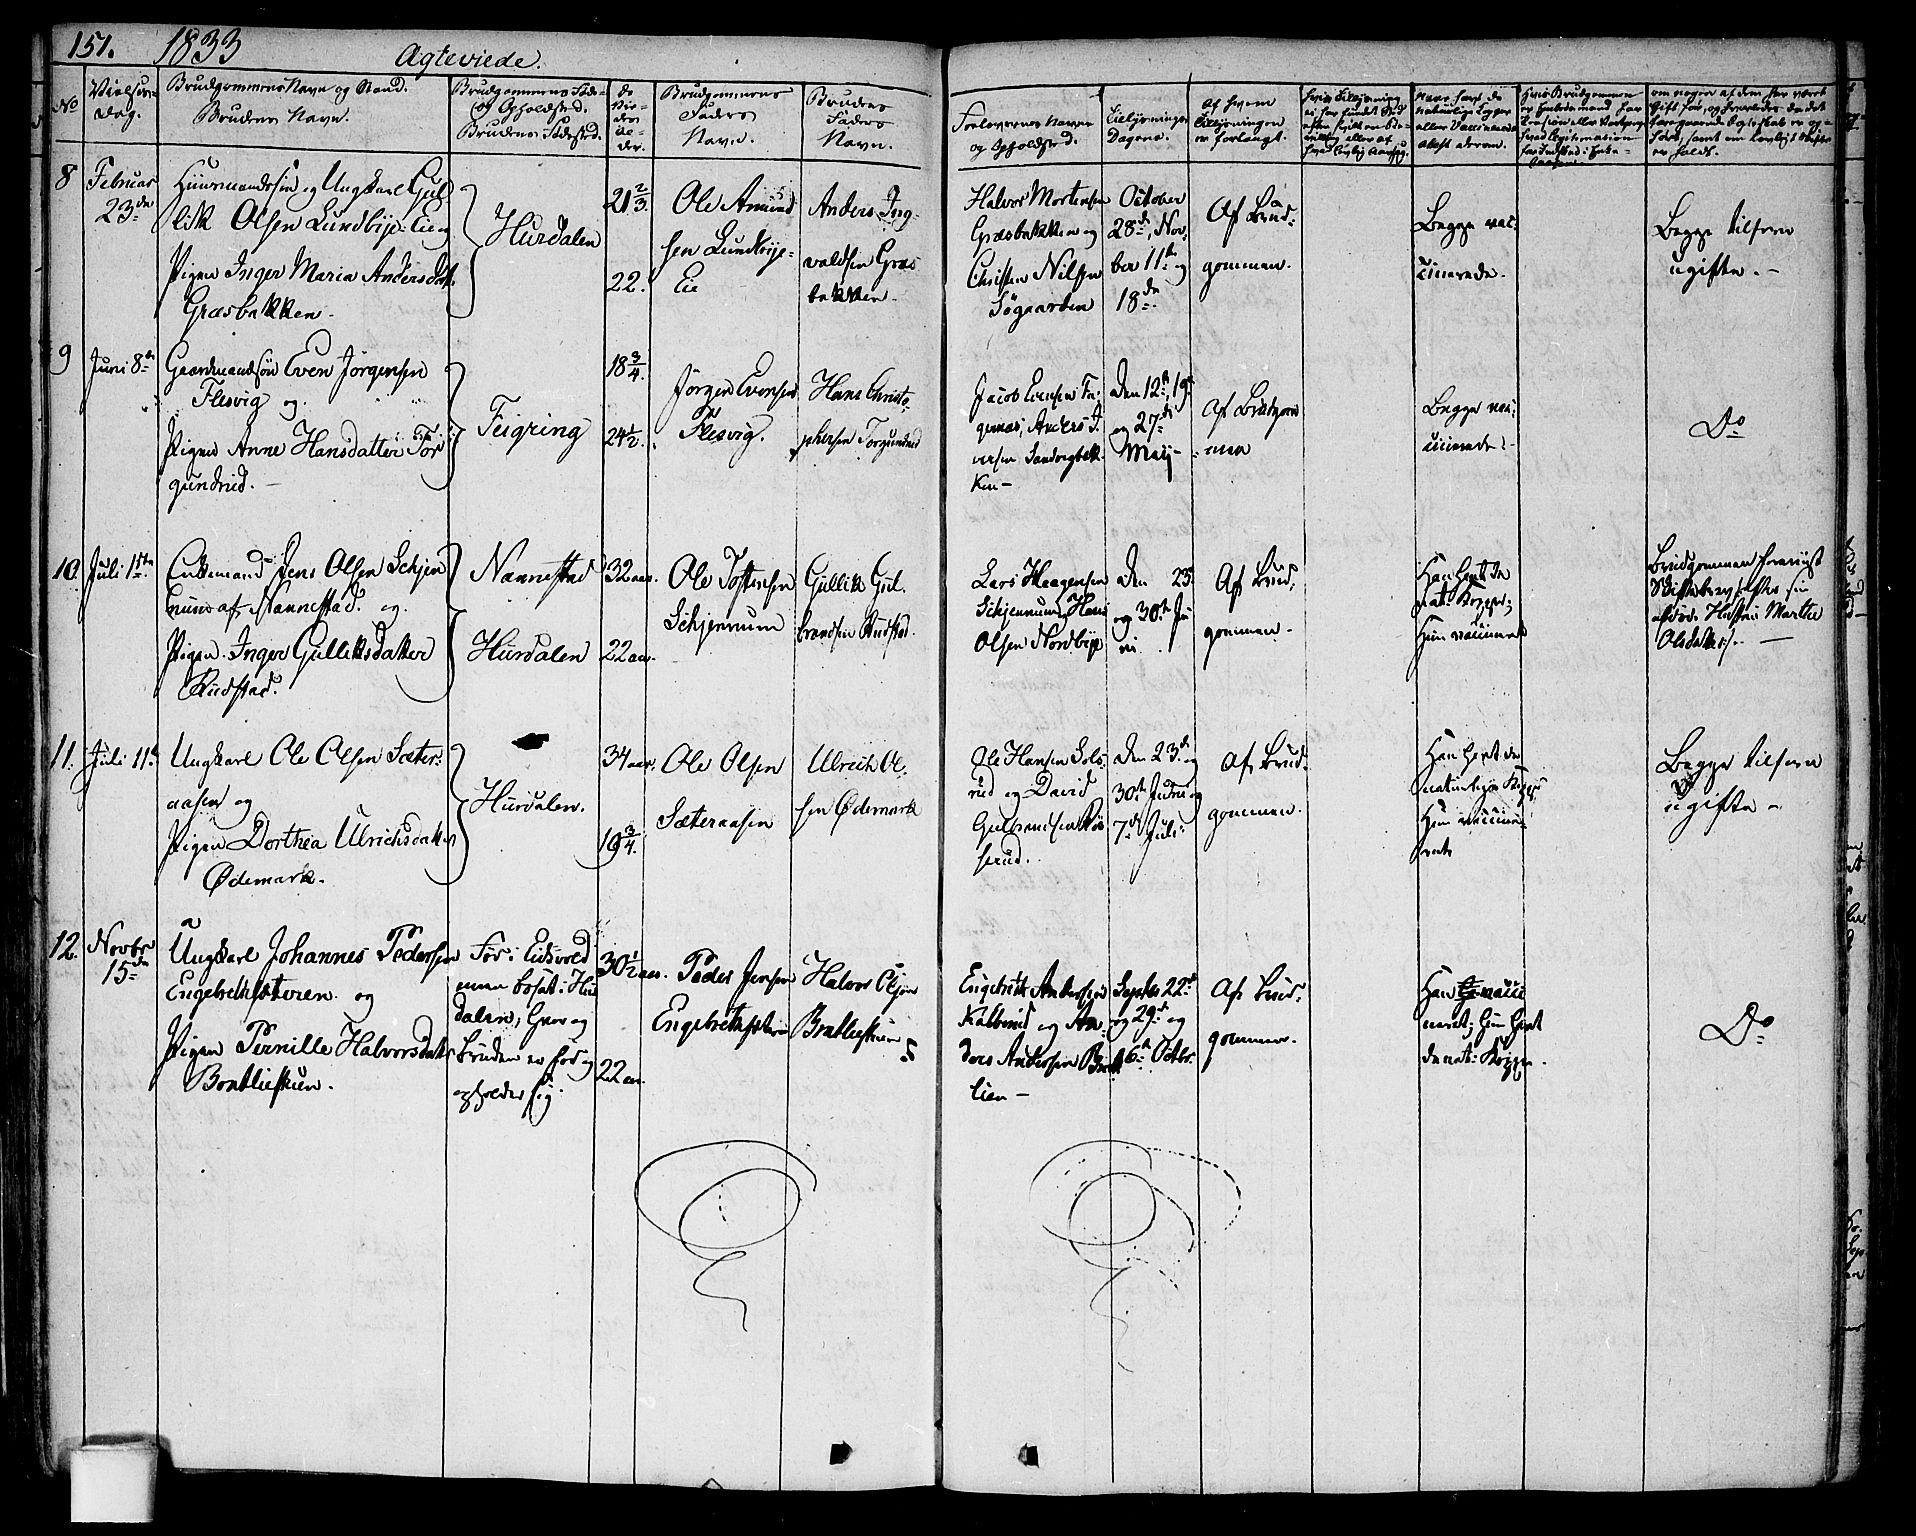 151. 1833 Agteviede.
No
Vielses-
Dag.
Brudgommens Navn og Stand.
Brudens Navn.
Brudgommens Føde-
og Opholdsted.
Brudens Fødested.
Brudgommens
Faders
Navn.
Brudens
Faders
Navn.
Forlovernes Navne
og Opholdsted.
Tillysnings
Dagene.
Af hvem
Tillysningen
er forlangt.
8
Februar
23de
Huusmandssøn og Ungkarl Gul
lik Olsen Lundbye-Eie og
Pigen Inger Maria Andersdatt.
Græsbakken.
Hurdalen
21 2/3.
22.
Ole Amund
sen Lundbye-
Eie
Anders Ing-
valdsen Græs
bakken
Halvor Mortensen
Græsbakken og
Christen Nilsen
Søgaarden
October
28de, Nov.
ber 11te og
18de
Af Brud-
gommen.
Begge vac-
cinerede.
Begge tilforn
ugifte.
9
Juni 8de
Gaardmandsøn Even Jørgensen
Flesvig og
Pigen Anne Hansdatter Tor
gundrud.
Feigring
18 3/4.
24 1/2.
Jørgen Evensen
Flesvig.
Hans Christo
phersen Torgundrud
Jacob Evensen Fa-
gernæs, Anders I
versen Sandvigbak
ken
Den 12te, 19de
og 27de
Maij
Af Brudgom
men
Begge vac-
cinerede.
Do
10.
Juli 1ste
Enkemand Jens Olsen Schjen
num af Nannestad og
Pigen Inger Gulliksdatter
Rudstad.
Nannestad
Hurdalen
32 aar.
22 aar.
Ole Tostensen
Schjennum
Gullik Gul-
brandsen Rudstad.
Lars Haagensen
Schjennum, Hans
Olsen Nordbye
Den 23de
og 30te Ju
ni
Af Brud-
gommen.
Han havt de
nat: Kopper;
Hun vaccineret
Brudgommen foreviist
Skiftebrev efter sin
afdøde Hustru Marthe
Olsdatter.
11.
Juli 11te
Ungkarl Ole Olsen Sæter-
aasen og
Pigen Dorthea Ulrichsdatter
Ødemark.
Hurdalen.
34 aar.
19 3/4.
Ole Olsen
Sæteraasen
Ulrich Ol-
sen Ødemark
Ole Hansen Sols
rud og David
Gulbrandsen Røi
serud.
Den 23de og
30te Juni og
7de Juli
Af Brud-
gommen.
Han havt de
naturlige Kopper
Hun vaccine-
ret
Begge tilforn
ugifte
12.
Novbr
15de
Ungkarl Johannes Pedersen
Engebretsæteren og
Pigen Pernille Halvorsdatter
Bratlieskuen.
Før i Eidsvold
men bosat i Hur
dalen, hvor og
Bruden er født og
opholder sig.
30 1/2 aar.
22 aar.
Peder Jensen
Engebretsæteren
Halvor Olsen
Bratlieskuen
Engebrett Andersen
Kalberud og An-
ders Andersen Brat
lien
Septbr 22de
og 29de og
6te Octbr.
Af Brud-
gommen.
Han vacci
neret; Hun havt
de nat: Kopper.
Do